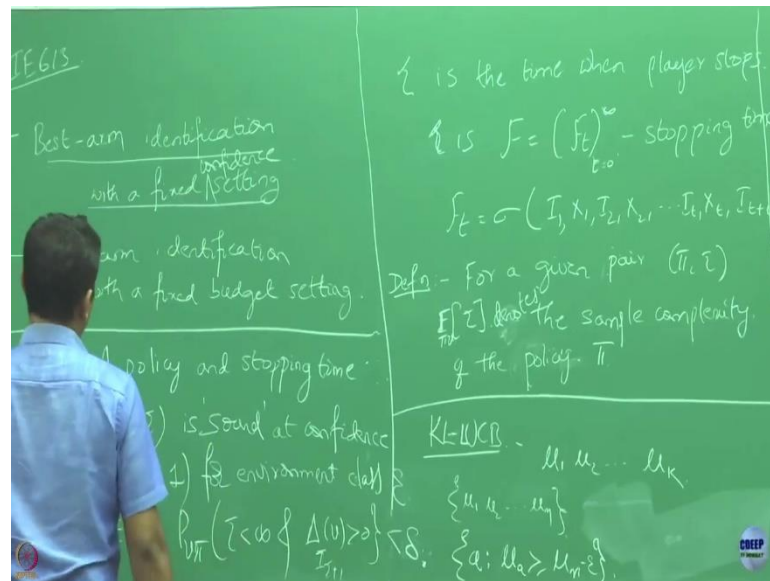 IE613
- Best-arm identification
confidence
with a fixed setting
arm identification
a fixed budget setting.
policy and stopping time
is 'sound' at confidence
1) for environment class ξ
P_νπ (τ<∞ & Δ_{I_{τ+1}}(ν)>0) < δ.
τ is the time when player stops.
τ is F = (F_t)_{t=0}^∞ - stopping time
F_t = σ( I_1 X_1, I_2, X_2, ... I_t, X_t, I_{t+1}
Defn :- For a given pair (π, τ)
E_νπ[τ] denotes the sample complexity
of the policy π
KL-UCB -
μ_1 μ_2 ... μ_K
{μ_1 μ_2 ... μ_m}
{a: μ_a ≥ μ_m-ε}.
CDEEP
IIT BOMBAY